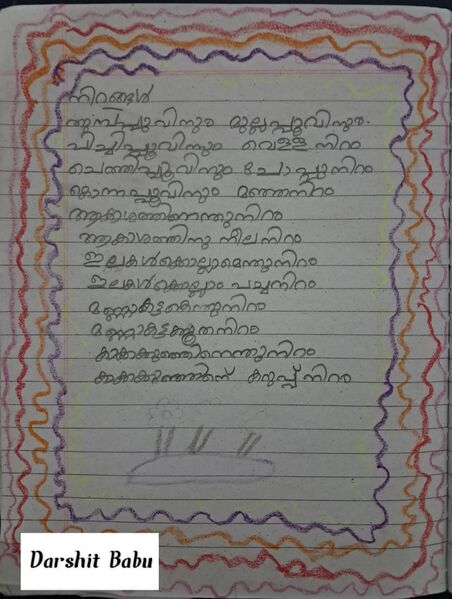 നിറങ്ങൾ
തുമ്പപ്പൂവിനും മുല്ലപ്പൂവിനും.
പിച്ചിപ്പൂവിനും വെള്ളനിറം
ചെത്തിപ്പൂവിനും ചോപ്പുനിറം
കൊന്നപ്പൂവിനും മഞ്ഞനിറം
ആകാശത്തിനെന്തുനിറം
ആകാശത്തിനു നീലനിറം
ഇലകൾക്കെല്ലാമെന്തുനിറം
ഇലകൾക്കെല്ലാം പച്ചനിറം
മണ്ണാങ്കട്ടക്കെന്തുനിറം
നിറം
കാക്കക്കുഞ്ഞിനെന്തുനിറം
കാക്കക്കുഞ്ഞിന് കറുപ്പ് നിറം
Darshit Babu